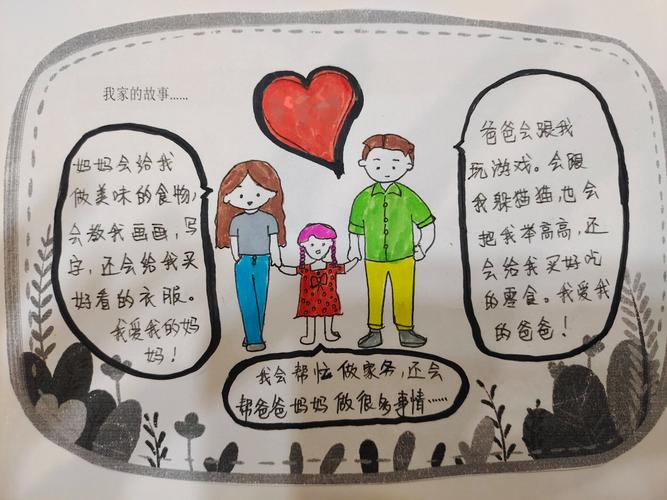 我家的故事……
妈妈会给我
做美味的食物,
会教我画画,写
字,还会给我买
好看的衣服。
我爱我的妈
妈!
爸爸会跟我
玩游戏。会跟
我躲猫猫,也会
把我举高高,还
会给我买好吃
的零食。我爱我
的爸爸!
我会帮忙做家务,还会
帮爸爸妈妈做很多事情……